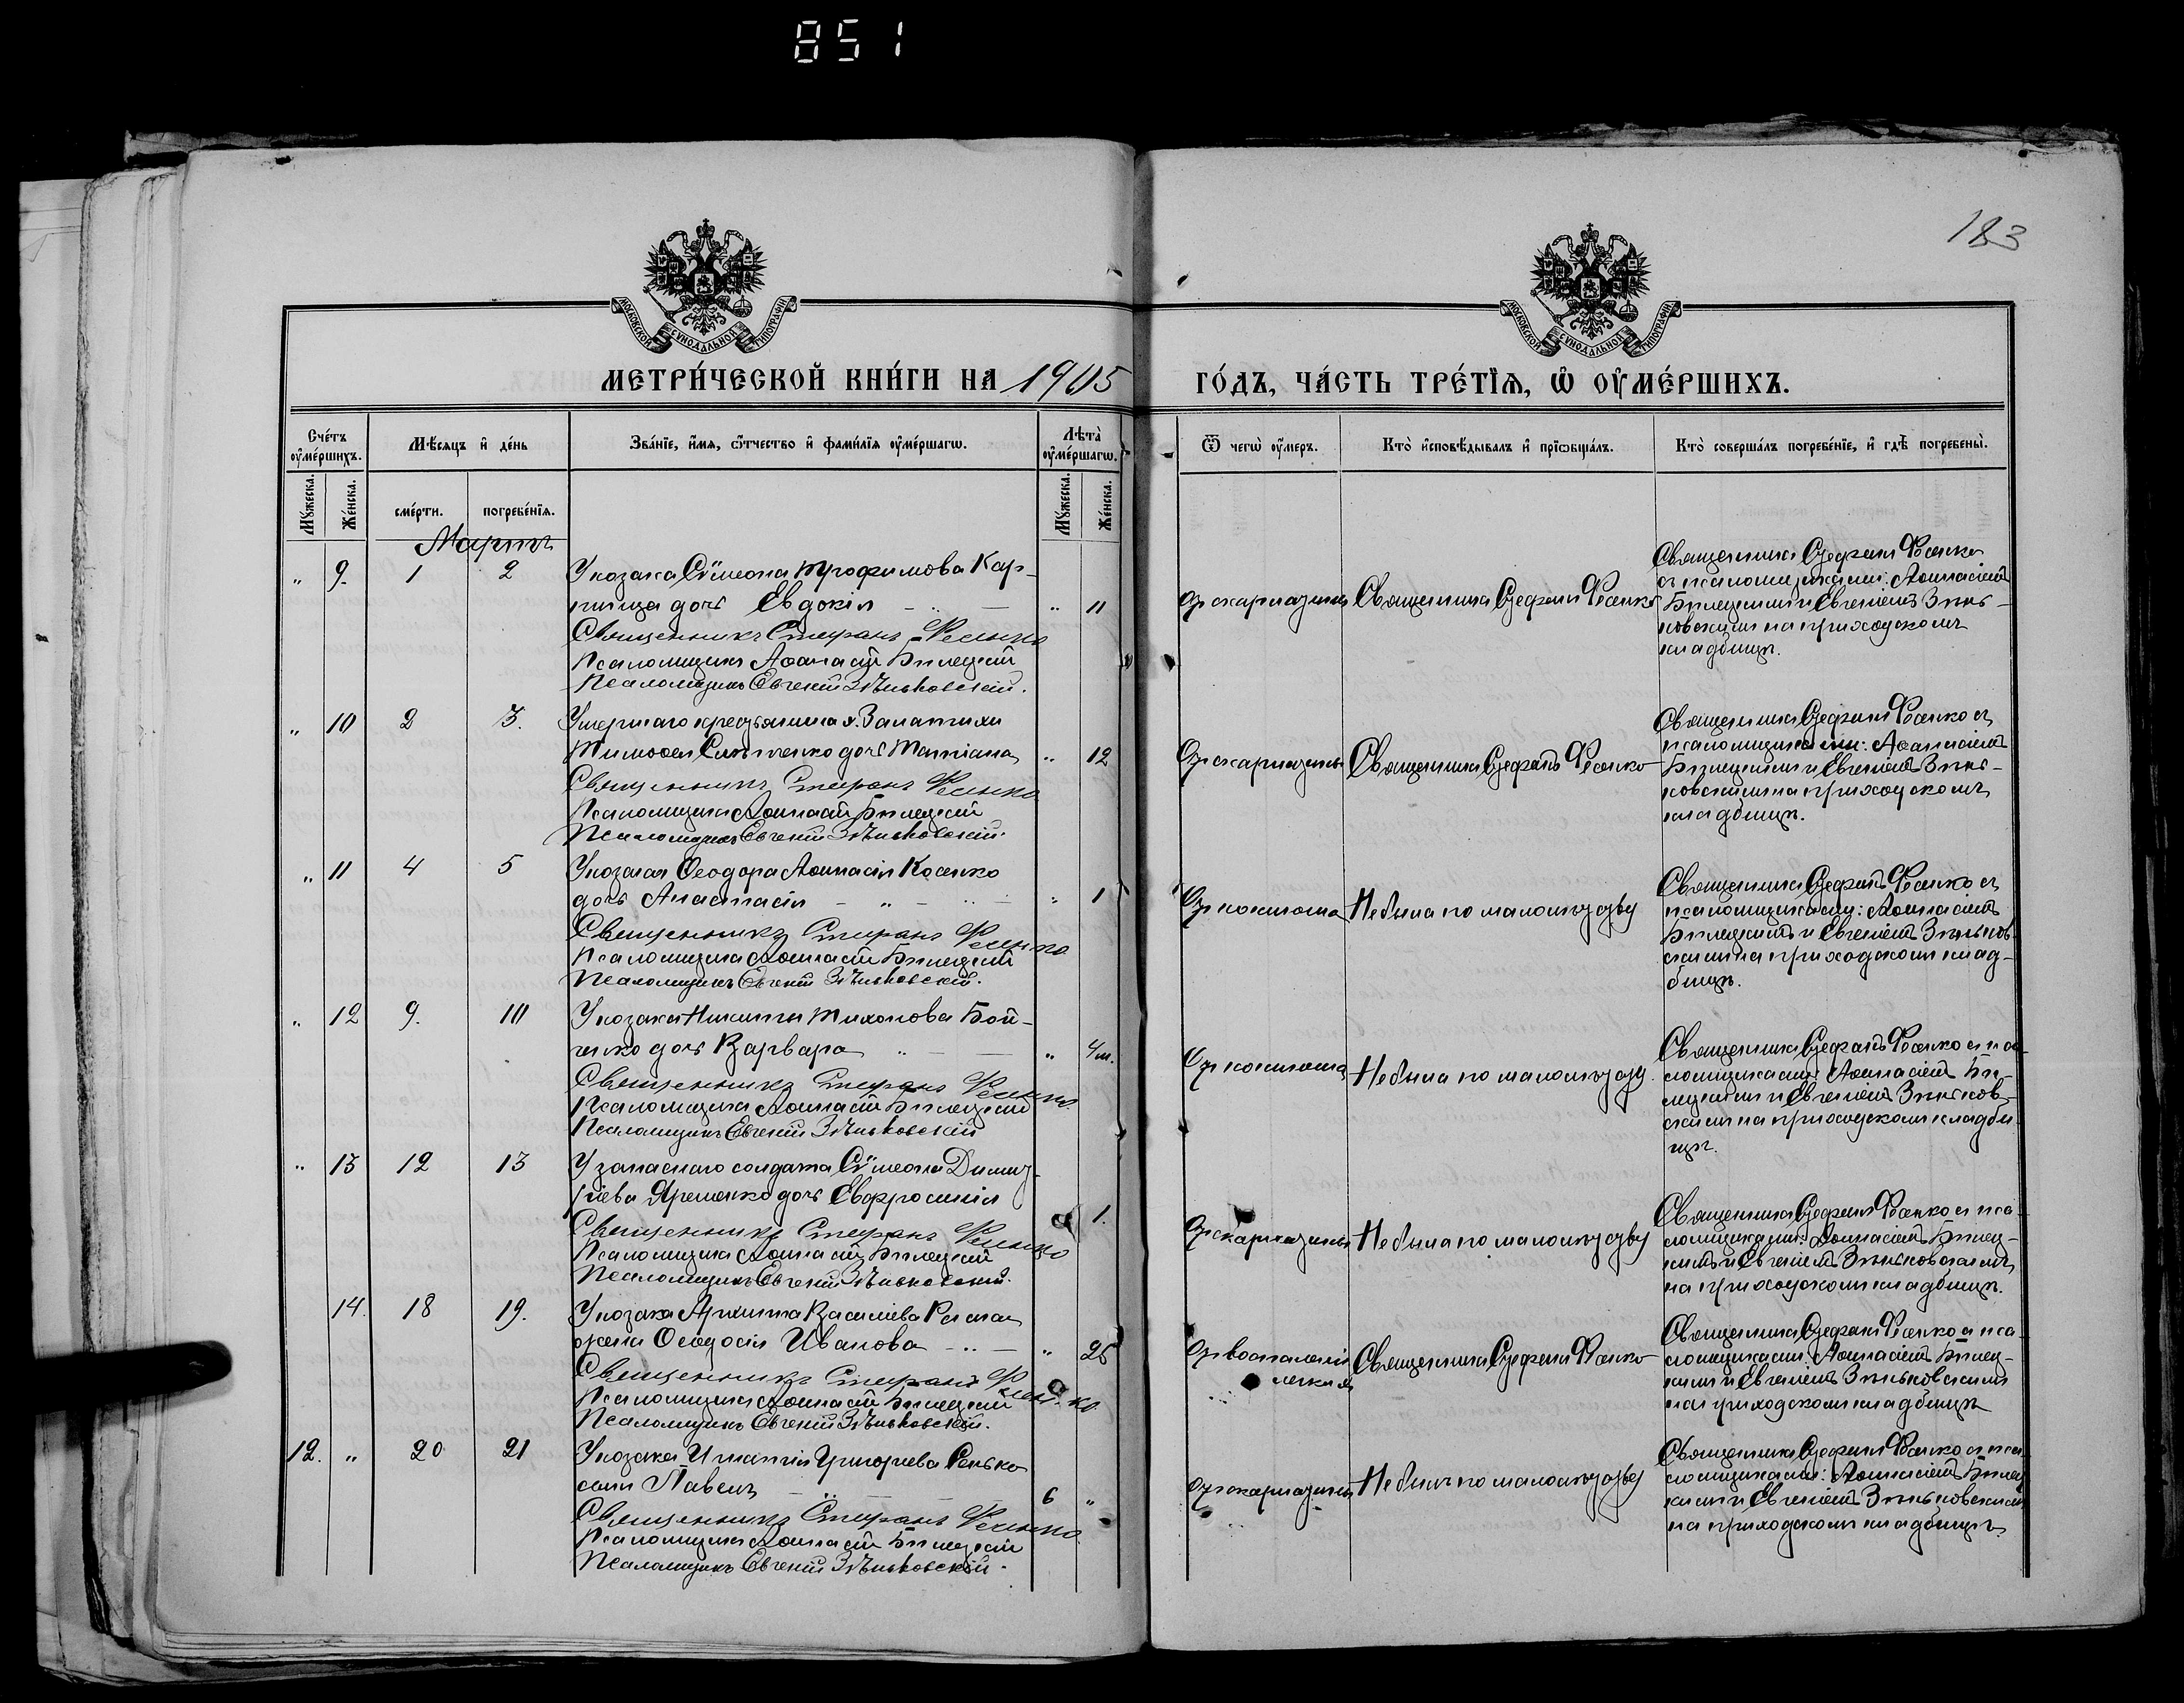 851
183
МОСКОВСКОЙ СѴНОДАЛЬНОЙ ТИПОГРАФІИ
МОСКОВСКОЙ СѴНОДАЛЬНОЙ ТИПОГРАФІИ
МЕТРИ́ЧЕСКОЙ КНИ́ГИ НА 1905 ГО́ДЪ, ЧА́СТЬ ТРЕ́ТЇѦ, Ѡ҆ ОУ҆МЕ́РШИХЪ.
Сче́тъ оу҆ме́ршихъ.
Мꙋ́жеска.
Же́нска.
Мѣ́сѧцъ и҆ де́нь
сме́рти.
погребе́нїѧ.
Зва́нїе, и҆́мѧ, ѻ҆́тчество и҆ фами́лїѧ оу҆ме́ршагѡ.
Лѣ́та оу҆ме́ршагѡ.
Мꙋ́жеска.
Же́нска.
Ѿ чегѡ̀ оу҆́меръ.
Кто̀ и҆сповѣ́дывалъ и҆ прїѡбща́лъ.
Кто̀ соверша́лъ погребе́нїе, и҆ гдѣ̀ погребены̀.
Мартъ
" 9. 1 2 У козака Сѵмеона Трофимова Кар-
пища дочь Евдокія " 11
Священникъ Стефанъ Фесенко
Псаломщикъ Аѳанасій Бѣлецкій
Псаломщикъ Евгеній Зѣньковскій.
От скарлатины
Священникъ Стефанъ Фесенко
Священникъ Стефанъ Фесенко
съ псаломщиками: Аѳанасіемъ
Бѣлецкимъ и Евгеніемъ Зѣнь-
ковскимъ на приходскомъ
кладбищѣ.
" 10 2 3. Умершаго крестьянина х.
Тимоѳея дочь Татіана " 12
Священникъ Стефанъ Фесенко
Псаломщикъ Аѳанасій Бѣлецкій
Псаломщикъ Евгеній Зѣньковскій.
От скарлатины
Священникъ Стефанъ Фесенко
Священникъ Стефанъ Фесенко съ
псаломщиками: Аѳанасіемъ
Бѣлецкимъ и Евгеніемъ Зѣнь-
ковскимъ на приходскомъ
кладбищѣ.
" 11 4 5 У козака Ѳеодора Аѳанасія Косенко
дочь Анастасія " 1
Священникъ Стефанъ Фесенко
Псаломщикъ Аѳанасій Бѣлецкій
Псаломщикъ Евгеній Зѣньковскій.
От коклюша
Не была по малолѣтству
Священникъ Стефанъ Фесенко съ
псаломщиками: Аѳанасіемъ
Бѣлецкимъ и Евгеніемъ Зѣньков-
скимъ на приходскомъ клад-
бищѣ.
" 12 9. 10 У козака Никиты Тихонова Бой-
ченко дочь Варвара " 4 м.
Священникъ Стефанъ Фесенко
Псаломщикъ Аѳанасій Бѣлецкій
Псаломщикъ Евгеній Зѣньковскій
От коклюша
Не была по малолѣтству
Священникъ Стефанъ Фесенко съ пса-
ломщиками: Аѳанасіемъ Бѣ-
лецкимъ и Евгеніемъ Зѣньков-
скимъ на приходскомъ кладби-
щѣ.
" 13 12 13 У запаснаго солдата Сѵмеона Димит-
ріева Яременко дочь Евфросинія 1.
Священникъ Стефанъ Фесенко
Псаломщикъ Аѳанасій Бѣлецкій
Псаломщикъ Евгеній Зѣньковскій.
От скарлатины
Не была по малолѣтству
Священникъ Стефанъ Фесенко съ пса-
ломщиками: Аѳанасіемъ Бѣлец-
кимъ и Евгеніемъ Зѣньковскимъ
на приходскомъ кладбищѣ.
14. 18 19. У козака Архипа Василіева
жена Ѳеодосія Иванова " 25
Священникъ Стефанъ Фесенко
Псаломщикъ Аѳанасій Бѣлецкій
Псаломщикъ Евгеній Зѣньковскій.
От воспаленія
легкихъ
Священникъ Стефанъ Фесенко
Священникъ Стефанъ Фесенко съ пса-
ломщиками: Аѳанасіемъ Бѣлец-
кимъ и Евгеніемъ Зѣньковскимъ
на приходскомъ кладбищѣ
12. " 20 21 У козака Игнатія Григорiева Сенько
сынъ Павелъ 6 "
Священникъ Стефанъ Фесенко
Псаломщикъ Аѳанасій Бѣлецкій
Псаломщикъ Евгеній Зѣньковскій.
От скарлатины
Не былъ по малолѣтству
Священникъ Стефанъ Фесенко съ пса-
ломщиками: Аѳанасіемъ Бѣлец-
кимъ и Евгеніемъ Зѣньковскимъ
на приходскомъ кладбищѣ